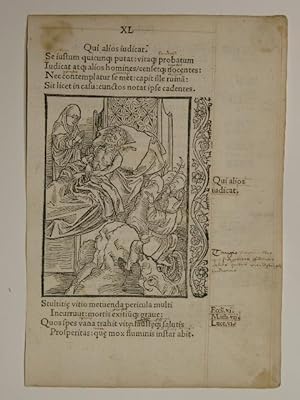 XL
Qui alios iudicat.
Se iustum quicunq; putat: vitaq; probatum
Iudicat atq; alios homines/censetq; nocentes:
Nec contemplatur se met: capit ille ruinā:
Sit licet in casu: cunctos notat ipse cadentes.
Qui alios
iudicat.
Stultitię vitio metuenda pericula multi
Incurrunt: mortis exitiūq; graue:
Quos spes vana trahit vitę: faustęq; salutis
Prosperitas: quę mox fluminis instar abit.
Eccli.vi.
Math.vii
Luce.vi